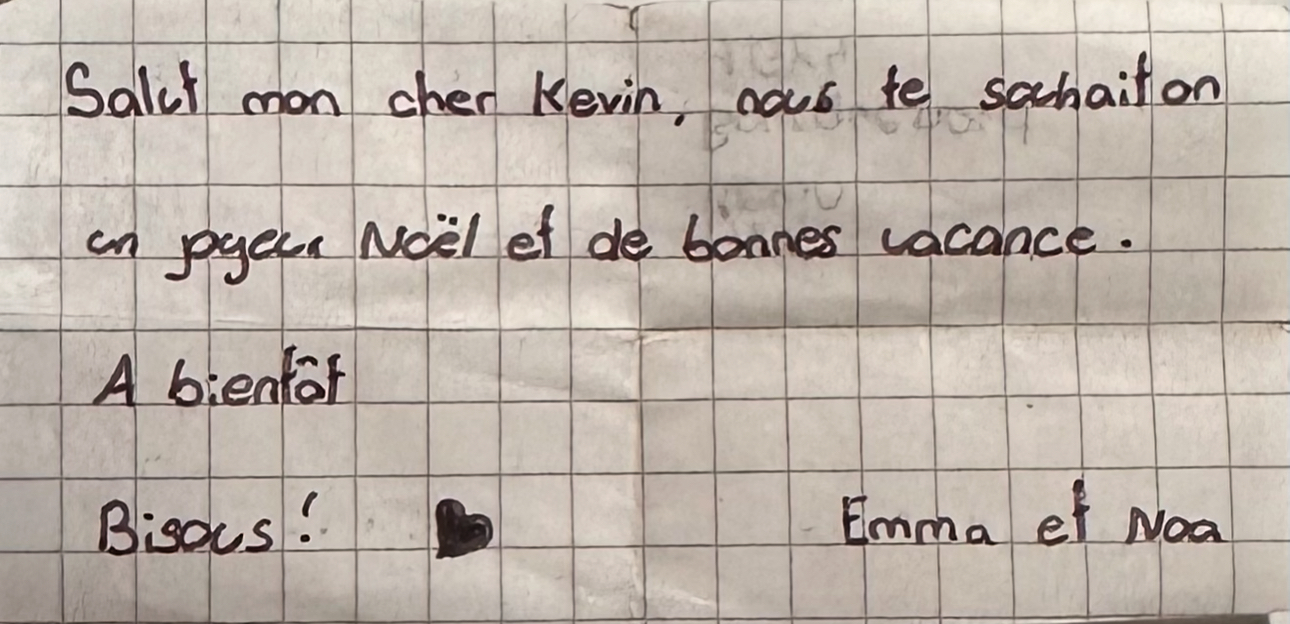 Salut mon cher Kevin, nous te souhaiton
un joyeux Noël et de bonnes vacance.
A bientôt
Bisous !
Emma et Noa